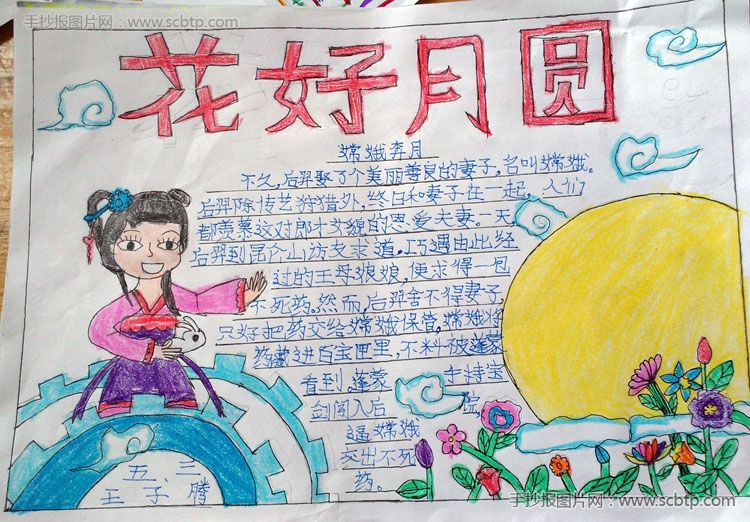 手抄报图片网:www.scbtp.com
手抄报图片网:www.scbtp.com
花好月圆
嫦娥奔月
不久,后羿娶了个美丽善良的妻子,名叫嫦娥。
后羿除传艺狩猎外,终日和妻子在一起,人们
都羡慕这对郎才女貌的恩爱夫妻。一天
后羿到昆仑山访友求道,巧遇由此经
过的王母娘娘,便求得一包
不死药,然而,后羿舍不得妻子,
只好把药交给嫦娥保管,嫦娥将
药藏进百宝匣里,不料被蓬蒙
看到,蓬蒙 手持宝
剑闯入后 院
逼嫦娥
交出不死
药。
五、三
王子腾
手抄报图片网:www.scbtp.com